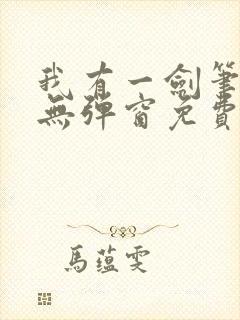 我有一劍筆
無彈窗免費
馬蘊雯